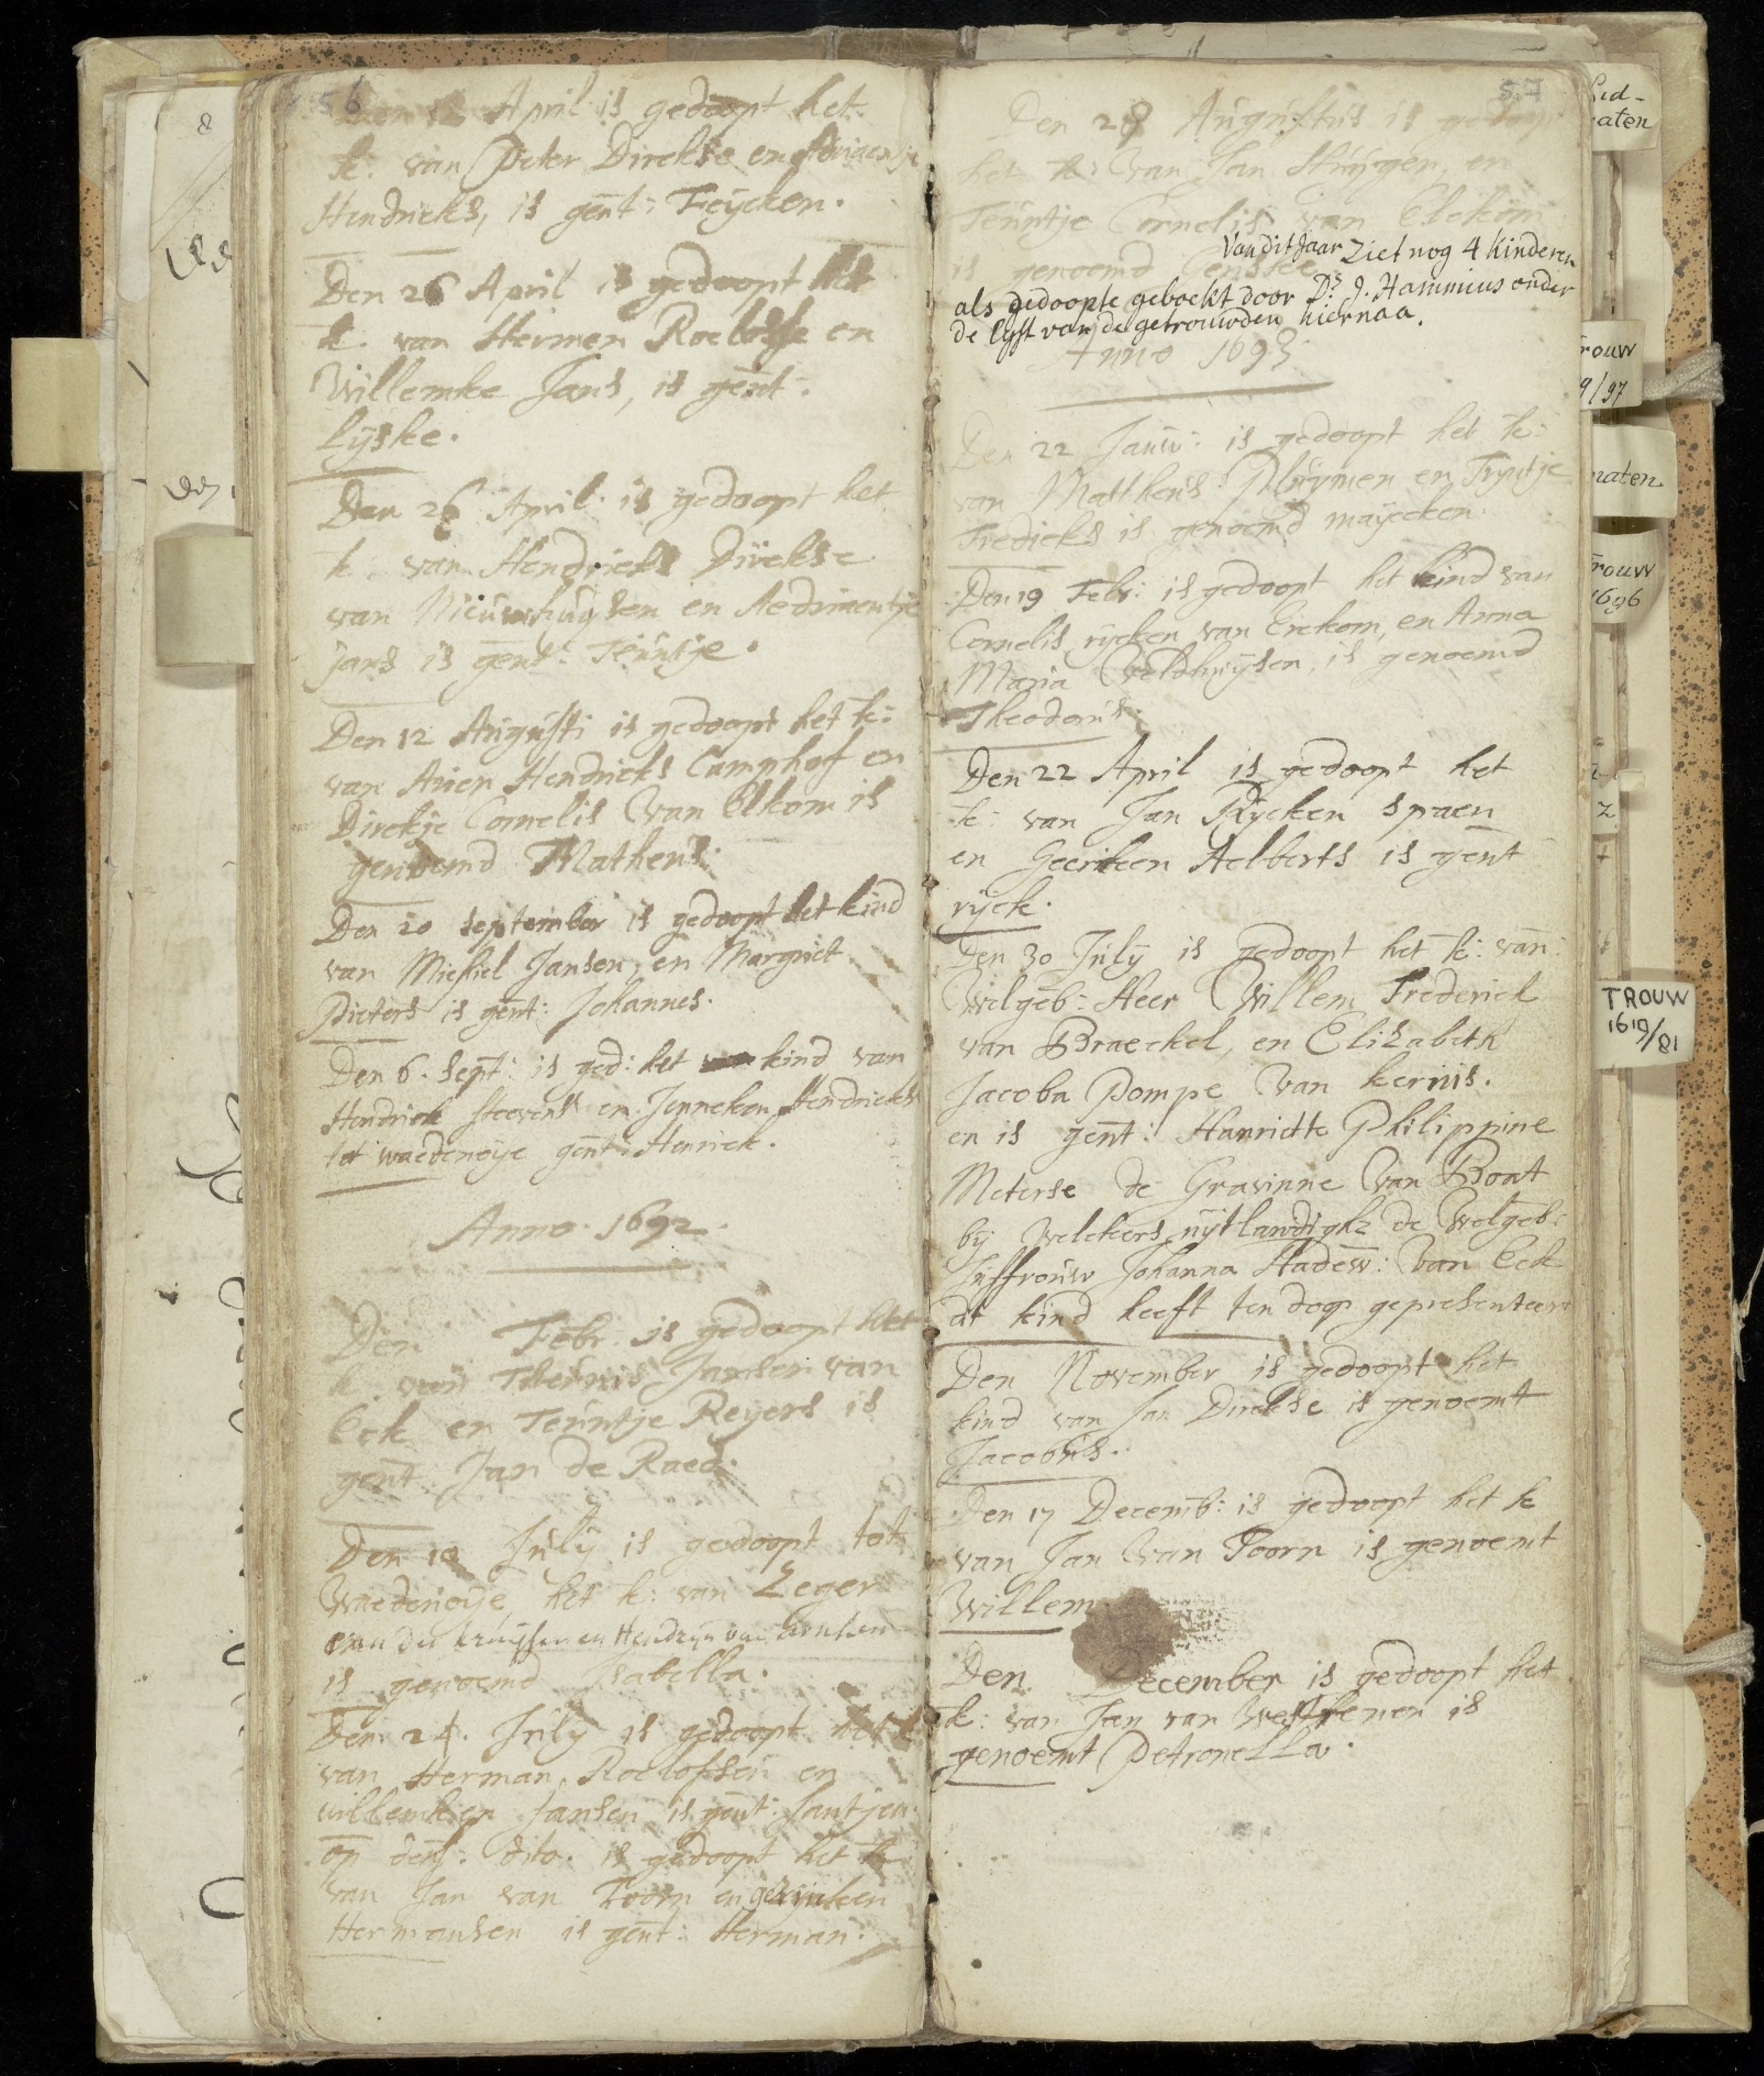 56
Den 12 April is gedoopt het
k: van Peter Dirckse en
Hendricks, is gent: Feijcken.
Den 26 April is gedoopt het
k. van Hermen Roelofse en
Willemke Jans, is gent:
Lijske.
Den 26 April is gedoopt het
k. van Hendrick Dirckse
van Nieuwhuijsen en
jans is gent: Teuntje.
Den 12 Augusti is gedoopt het k:
van Arien Hendricks Camphof en
Dirckje Cornelis van Elkom is
genoemd Matheus.
Den 20 september is gedoopt het kind
van Michiel Jansen, en Margriet
Pieters is gent: Johannes.
Den 6. sept: is ged: het kind van
Hendrick steevens en Jenneken Hendricks
tot waedenoije gent: Henrick.
Anno. 1692.
Den Febr: is gedoopt het
k. van Theunis Jansen van
Eck en Teuntje Reijers is
gent Jan de Raed.
Den 10 Julij is gedoopt tot
Waedenoije het k: van Zeger
van der kruijssen en Hendrijn van Arnhem
is genoemd Isabella.
Den 24. Julij is gedoopt het k
van Herman Roelofsen en
willemken Jansen is gent: Jantjen.
op denz. dito. is gedoopt het k
van Jan van Toorn en
Hermansen is gent: Herman.
57
Den 28 Augustus is gedoopt
het k: van Jan Huijgen, en
Teuntje Cornelis van Elckom
is genoemd
Van dit Jaar Ziet nog 4 kinderen
als gedoopte geboekt door Ds J. Hammius onder
de lyst van de getrouwden hiernaa.
Anno 1693
Den 22 Janu: is gedoopt het k:
van Matheus Pluijmen en Trijntje
Fredicks is genoemd maijcken
Den 19 Febr: is gedoopt het kind van
Cornelis rijcken van Erckom, en Anna
Maria Veldhuijsen, is genoemd
Theodorus.
Den 22 April is gedoopt het
k: van Jan Rijcken spaen
en Geerken Aelberts is gent
rijck.
Den 30 Julij is gedoopt het k: van
Welgeb: Heer Willem Frederick
van Braeckel, en Elizabeth
Jacoba Pompe van kernis.
en is gent: Hanriette Philippine
Meterse de Gravinne van Boat
bij welckers uijtlandighz de Welgeb:
Juffrouw Johanna van Eck
dit kind heeft ten doop gepresenteert
Den November is gedoopt het
kind van Jan Dirckse is genoemt
Jacobus.
Den 17 Decemb: is gedoopt het k
van Jan van Toorn is genoemt
Willem.
Den December is gedoopt het
k: van Jan van Westrenen is
genoemt Petronella.
TROUW
1619/81